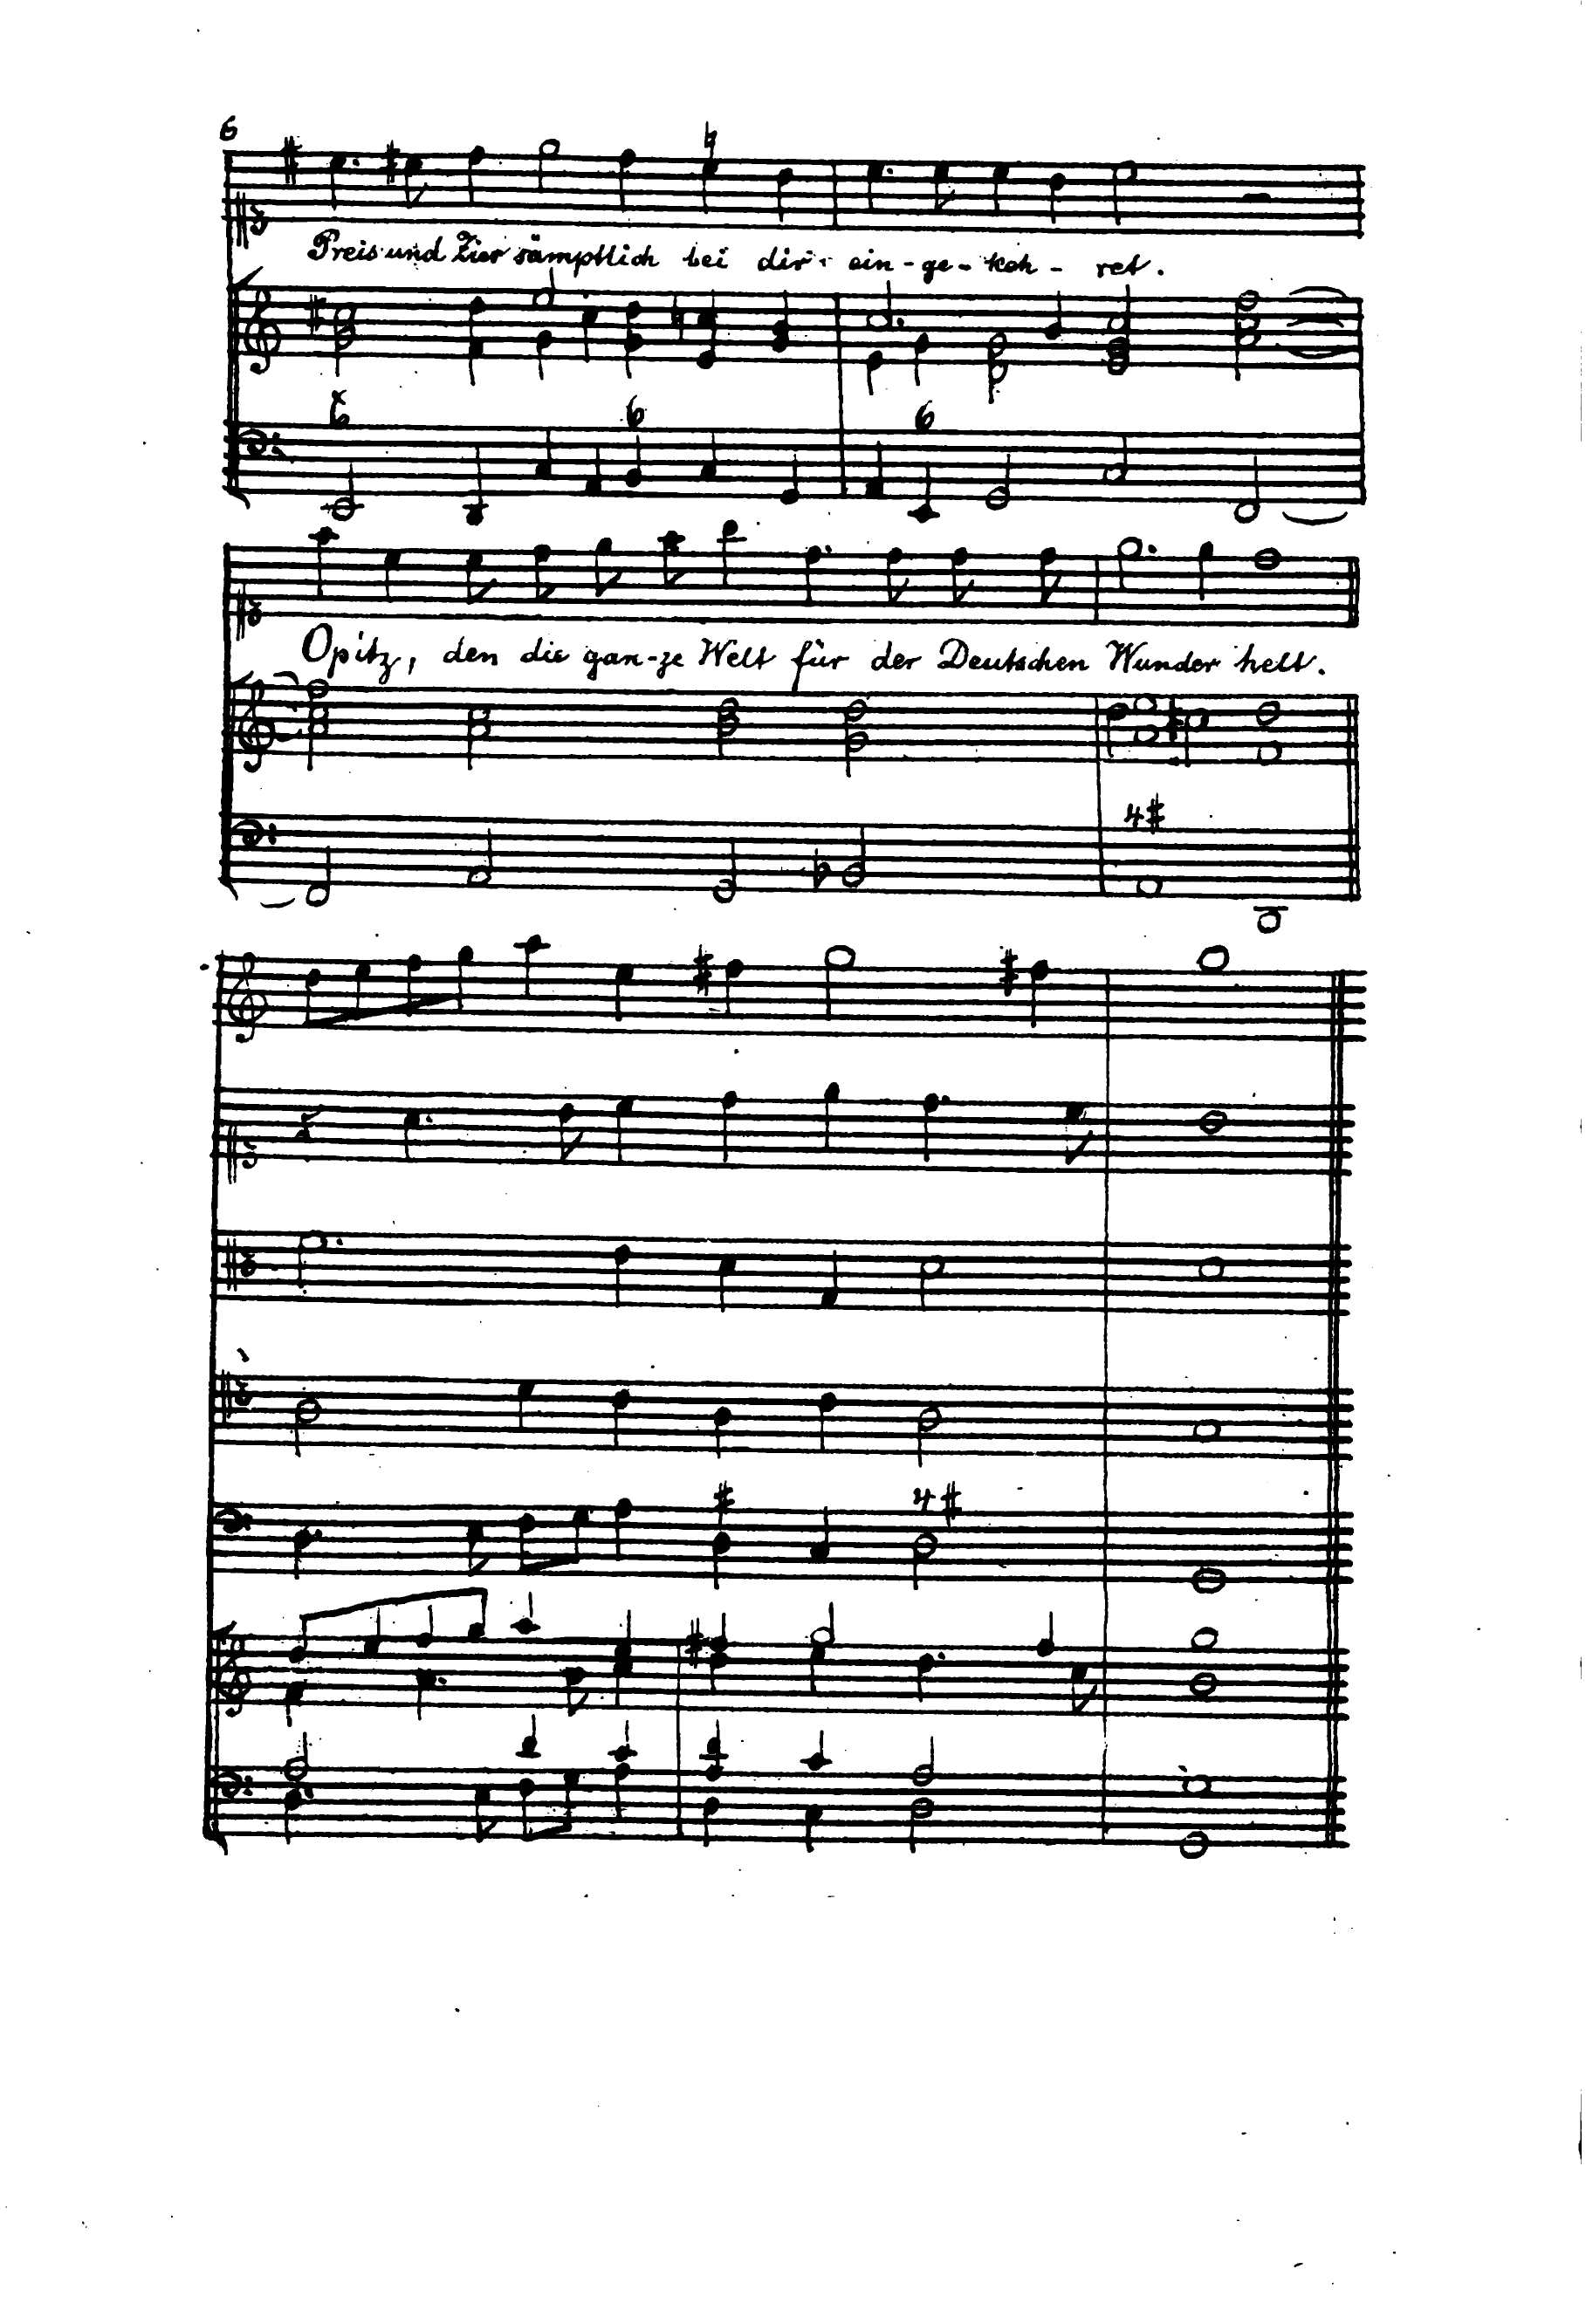 6
Preis und Zier sämptlich bei dir ein-ge-keh-ret.
6 6 6
Opitz, den die gan-ze Welt für der Deutschen Wunder helt.
4#
# 4#